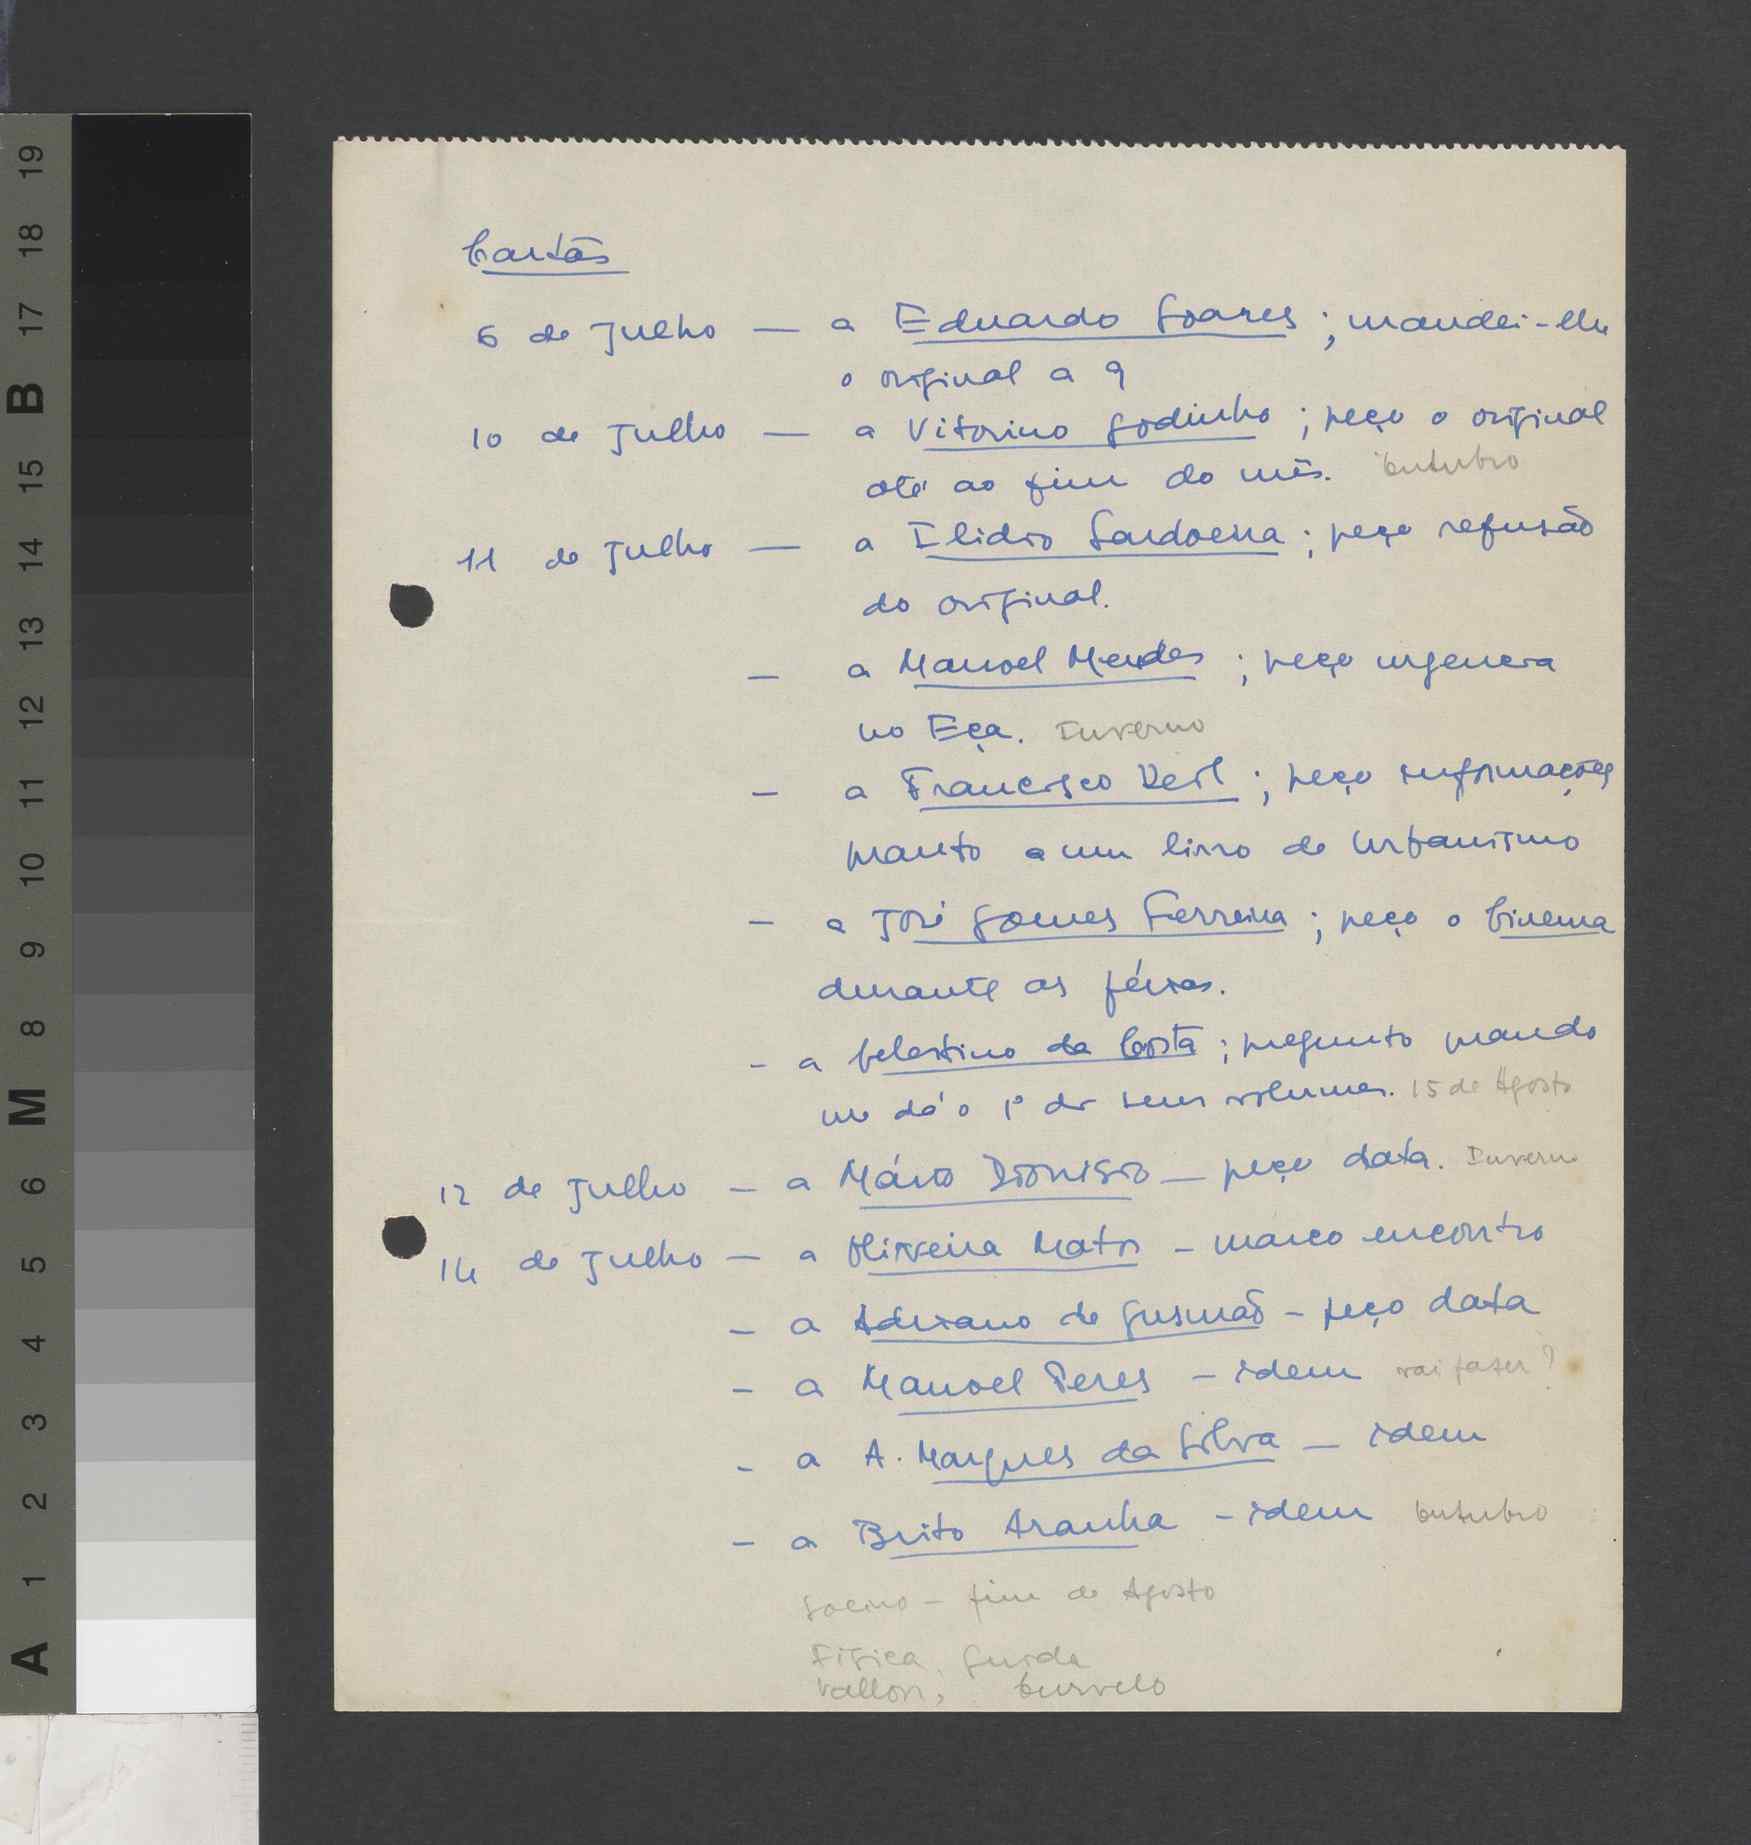 Cartas
6 de Julho — a Eduardo Soares ; mandei-lhe
o original a 9
10 de Julho — a Vitorino Godinho ; peço o original
até ao fim do mês. Outubro
11 de Julho — a Ilidio Sardoeira ; peço refusão
do original.
— a Manoel Mendes ; peço urgencia
no Eça. Inverno
— a Francisco Keil ; peço informações
quanto a um livro de Urbanismo
— a José Gomes Ferreira ; peço o Cinema
durante as férias.
- a Celestino da Costa ; pregunto quando
me dá o 1º dos seus volumes. 15 de Agosto
12 de Julho — a Mário Dionisio — peço data. Inverno
14 de Julho — a Oliveira Matos — marco encontro
— a Adriano de Gusmão — peço data
— a Manoel Peres — idem vai fazer ?
- a A. Marques da Silva — idem
— a Brito Aranha — idem Outubro
— fim de Agosto
Física, Guida
Vallon,
A 1 2 3 4 5 6 M 8 9 10 11 12 13 14 15 B 17 18 19